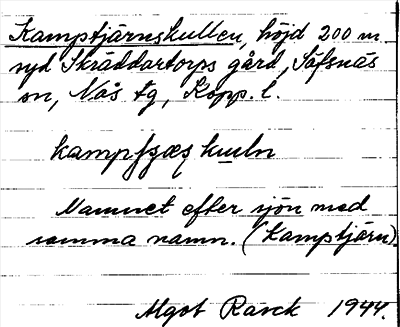 Kamptjärnskullen, höjd 200 m
syd Skräddartorps gård, Säfsnäs
sn, Nås tg, Kopp. l.
Namnet efter sjön med
samma namn. (Kamptjärn).
Algot Rarck 1944.